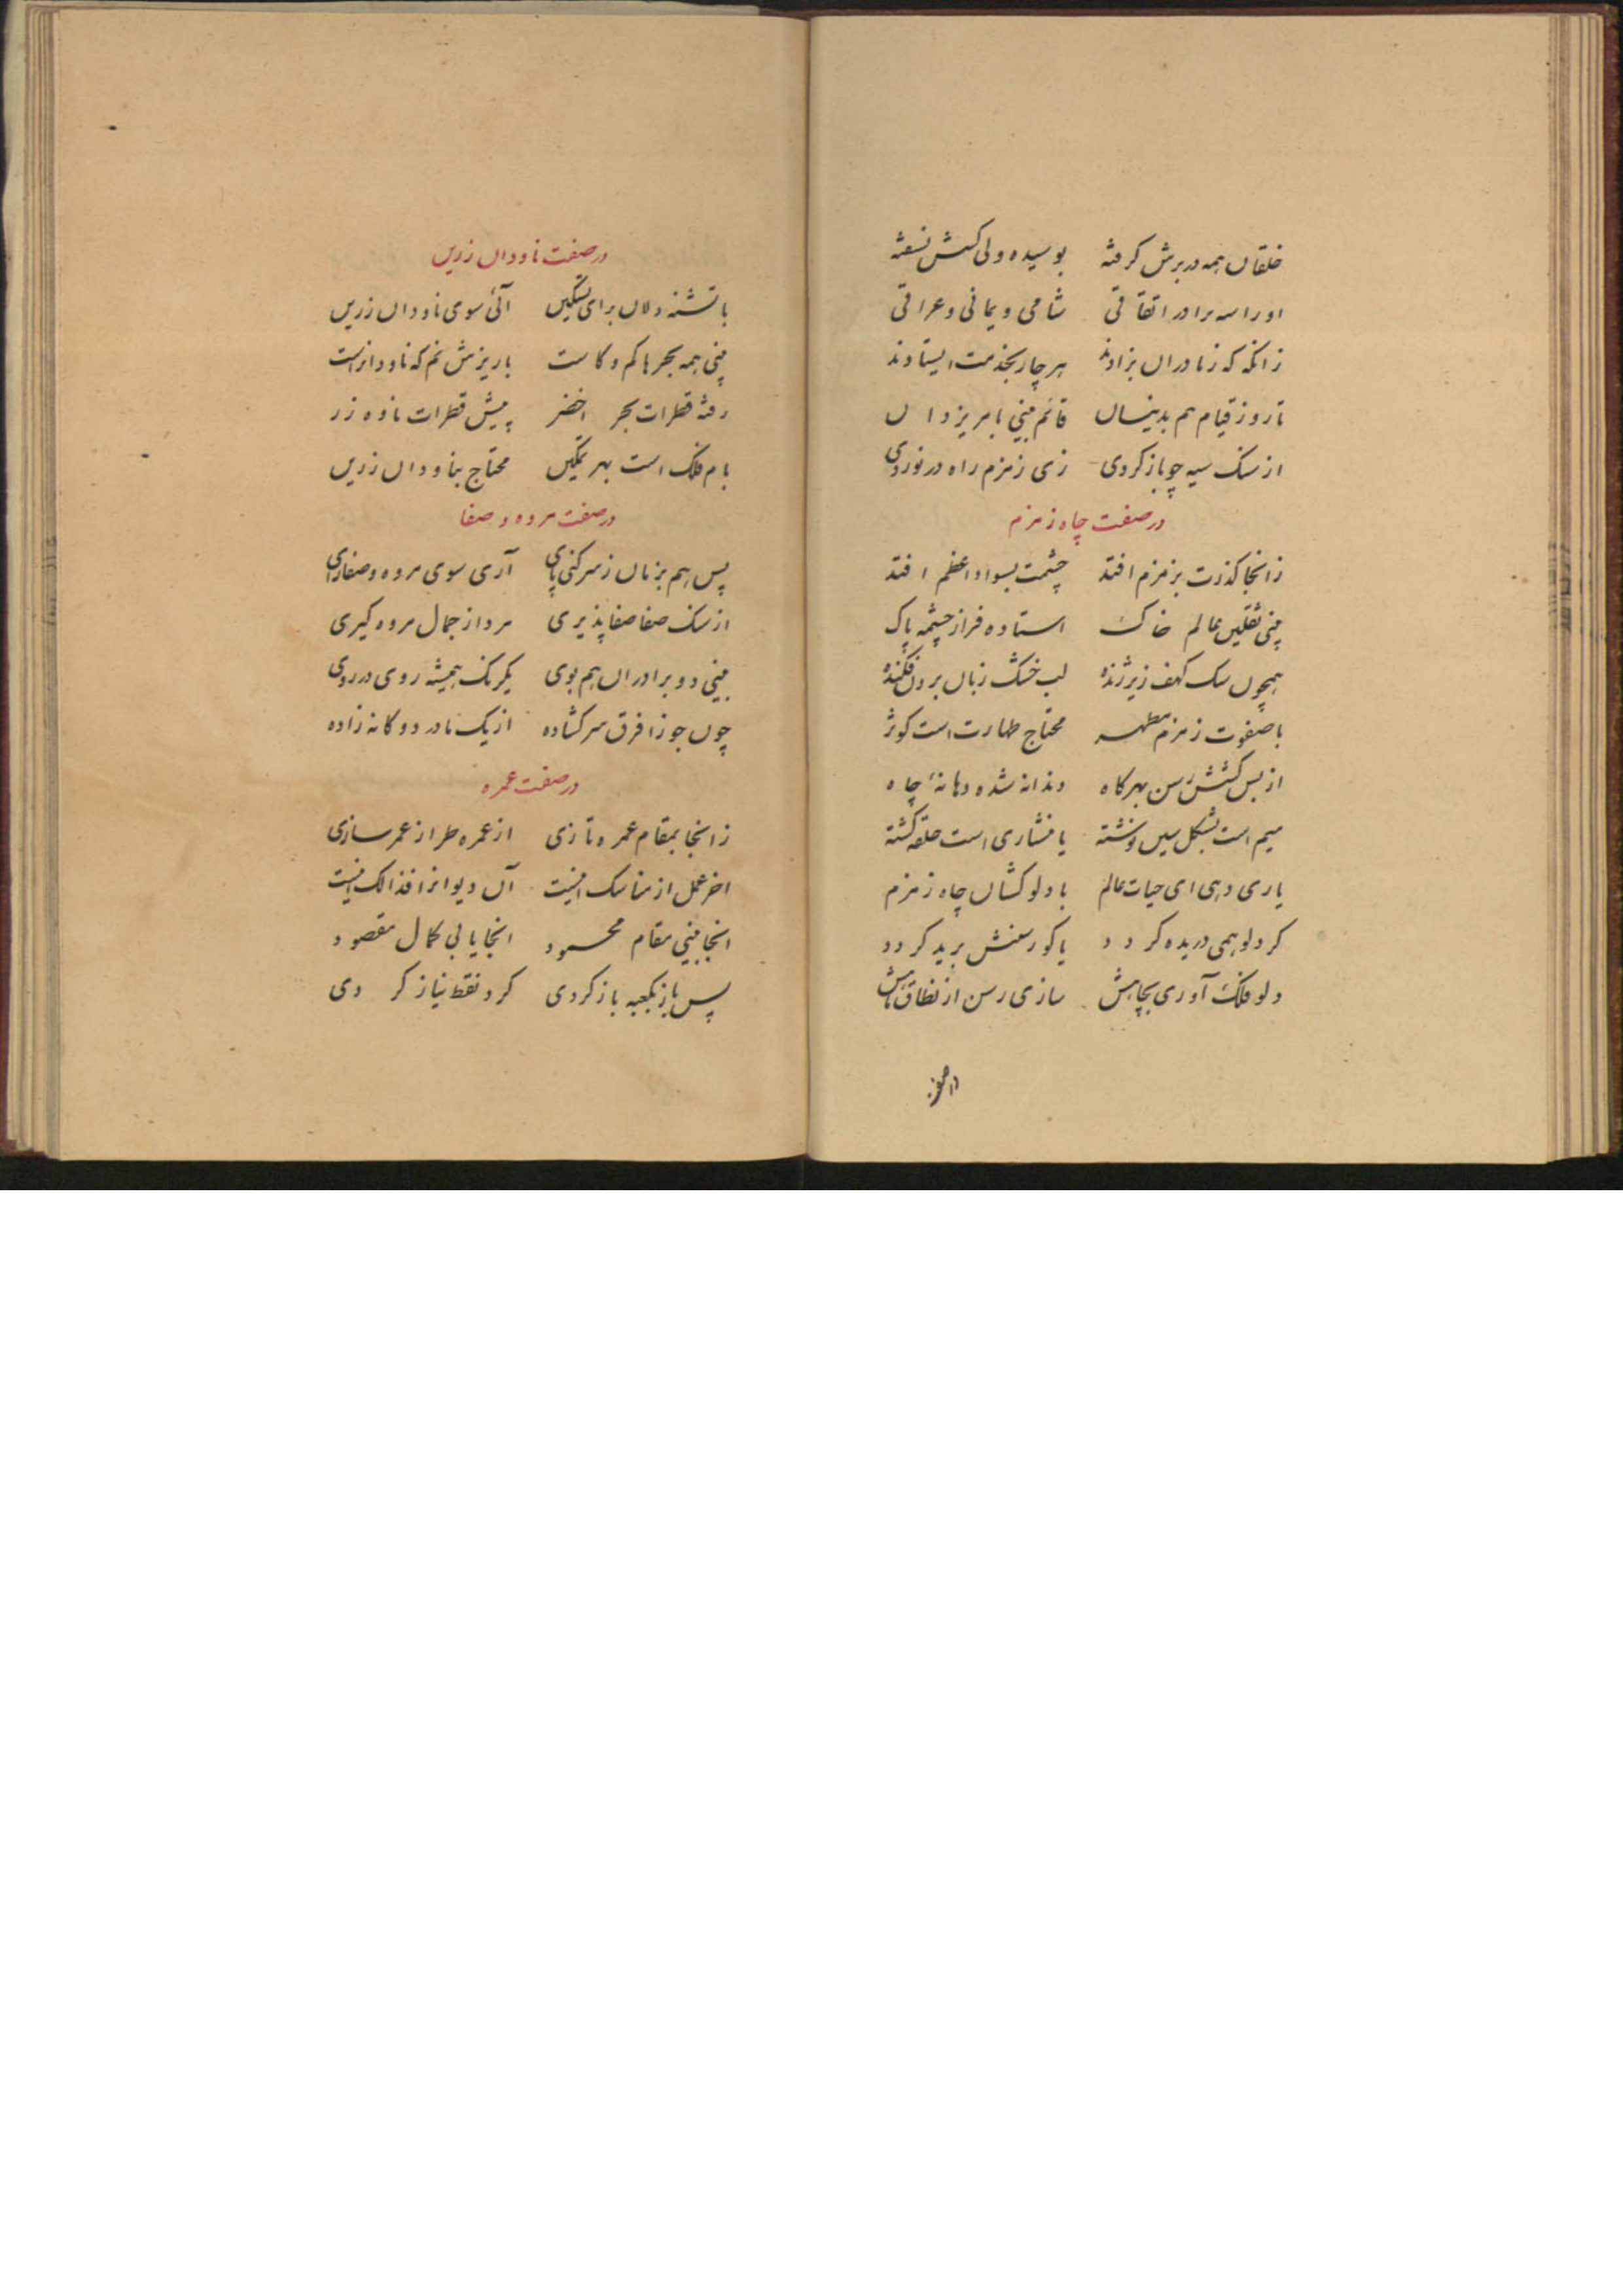 خلقان همه در برش گرفته بوسیده ولی کسش نسفته
او را سه برادر اتفاقی شامی و یمانی و عراقی
زانگه که ز مادران بزادند هر چار بخدمت ایستادند
تا روز قیام هم بدینسان قائم بینی بامر یزدان
از سنک سیه چو باز کردی زی زمزم راه در نوردی
در صفت چاه زمزم
زانجا گذرت بزمزم افتد چشمت بسواد اعظم افتد
بینی ثقلین عالم خاک استاده فراز چشمه پاک
همچون سک کهف زیر ژنده لب خشک زبان برون فکنده
با صفوت زمزم مطهر محتاج طهارت است کوثر
از بس کشش رسن بهر کاه دندانه شده دهانهٔ چاه
میم است بشکل سین نوشته یا منشاری است حلقه کشته
یاری دهی ای حیات عالم با دلو کشان چاه زمزم
کر دلو همی دریده کردد یا کو رسنش برید کردد
دلو فلک آوری بچاهش سازی رسن از نطاق
در صفت ناودان زرین
با تشنه دلان برای تسکین آئی سوی ناودان زرین
بینی همه بحرها کم و کاست با ریزش نم که ناودانراست
رفته قطرات بحر اخضر پیش قطرات ناوه زر
بام فلک است بهر تمکین محتاج بناودان زرین
در صفت مروه و صفا
پس هم بزمان ز سر کنی پای آری سوی مروه و صفا رای
از سنک صفا صفا پذیری مرد از جمال مروه کیری
بینی دو برادران هم بوی یکرنک همیشه روی در روی
چون جوزا فرق سر کشاده از یک مادر دو کانه زاده
در صفت عمره
زانجا بمقام عمره تازی از عمره طراز عمر سازی
اخر عمل از مناسک اینست آن دیوانرا فذالک اینست
انجا بینی مقام محسود انجا یابی کمال مقصود
پس باز بکعبه باز کردی کرد نقط نیاز کردی